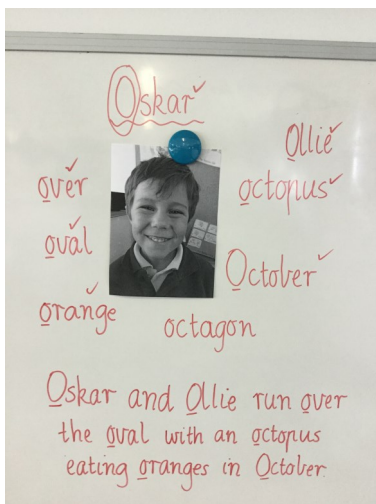 Oskar
Ollie
over
octopus
oval
October
orange
octagon
Oskar and Ollie run over
the oval with an octopus
eating oranges in October.